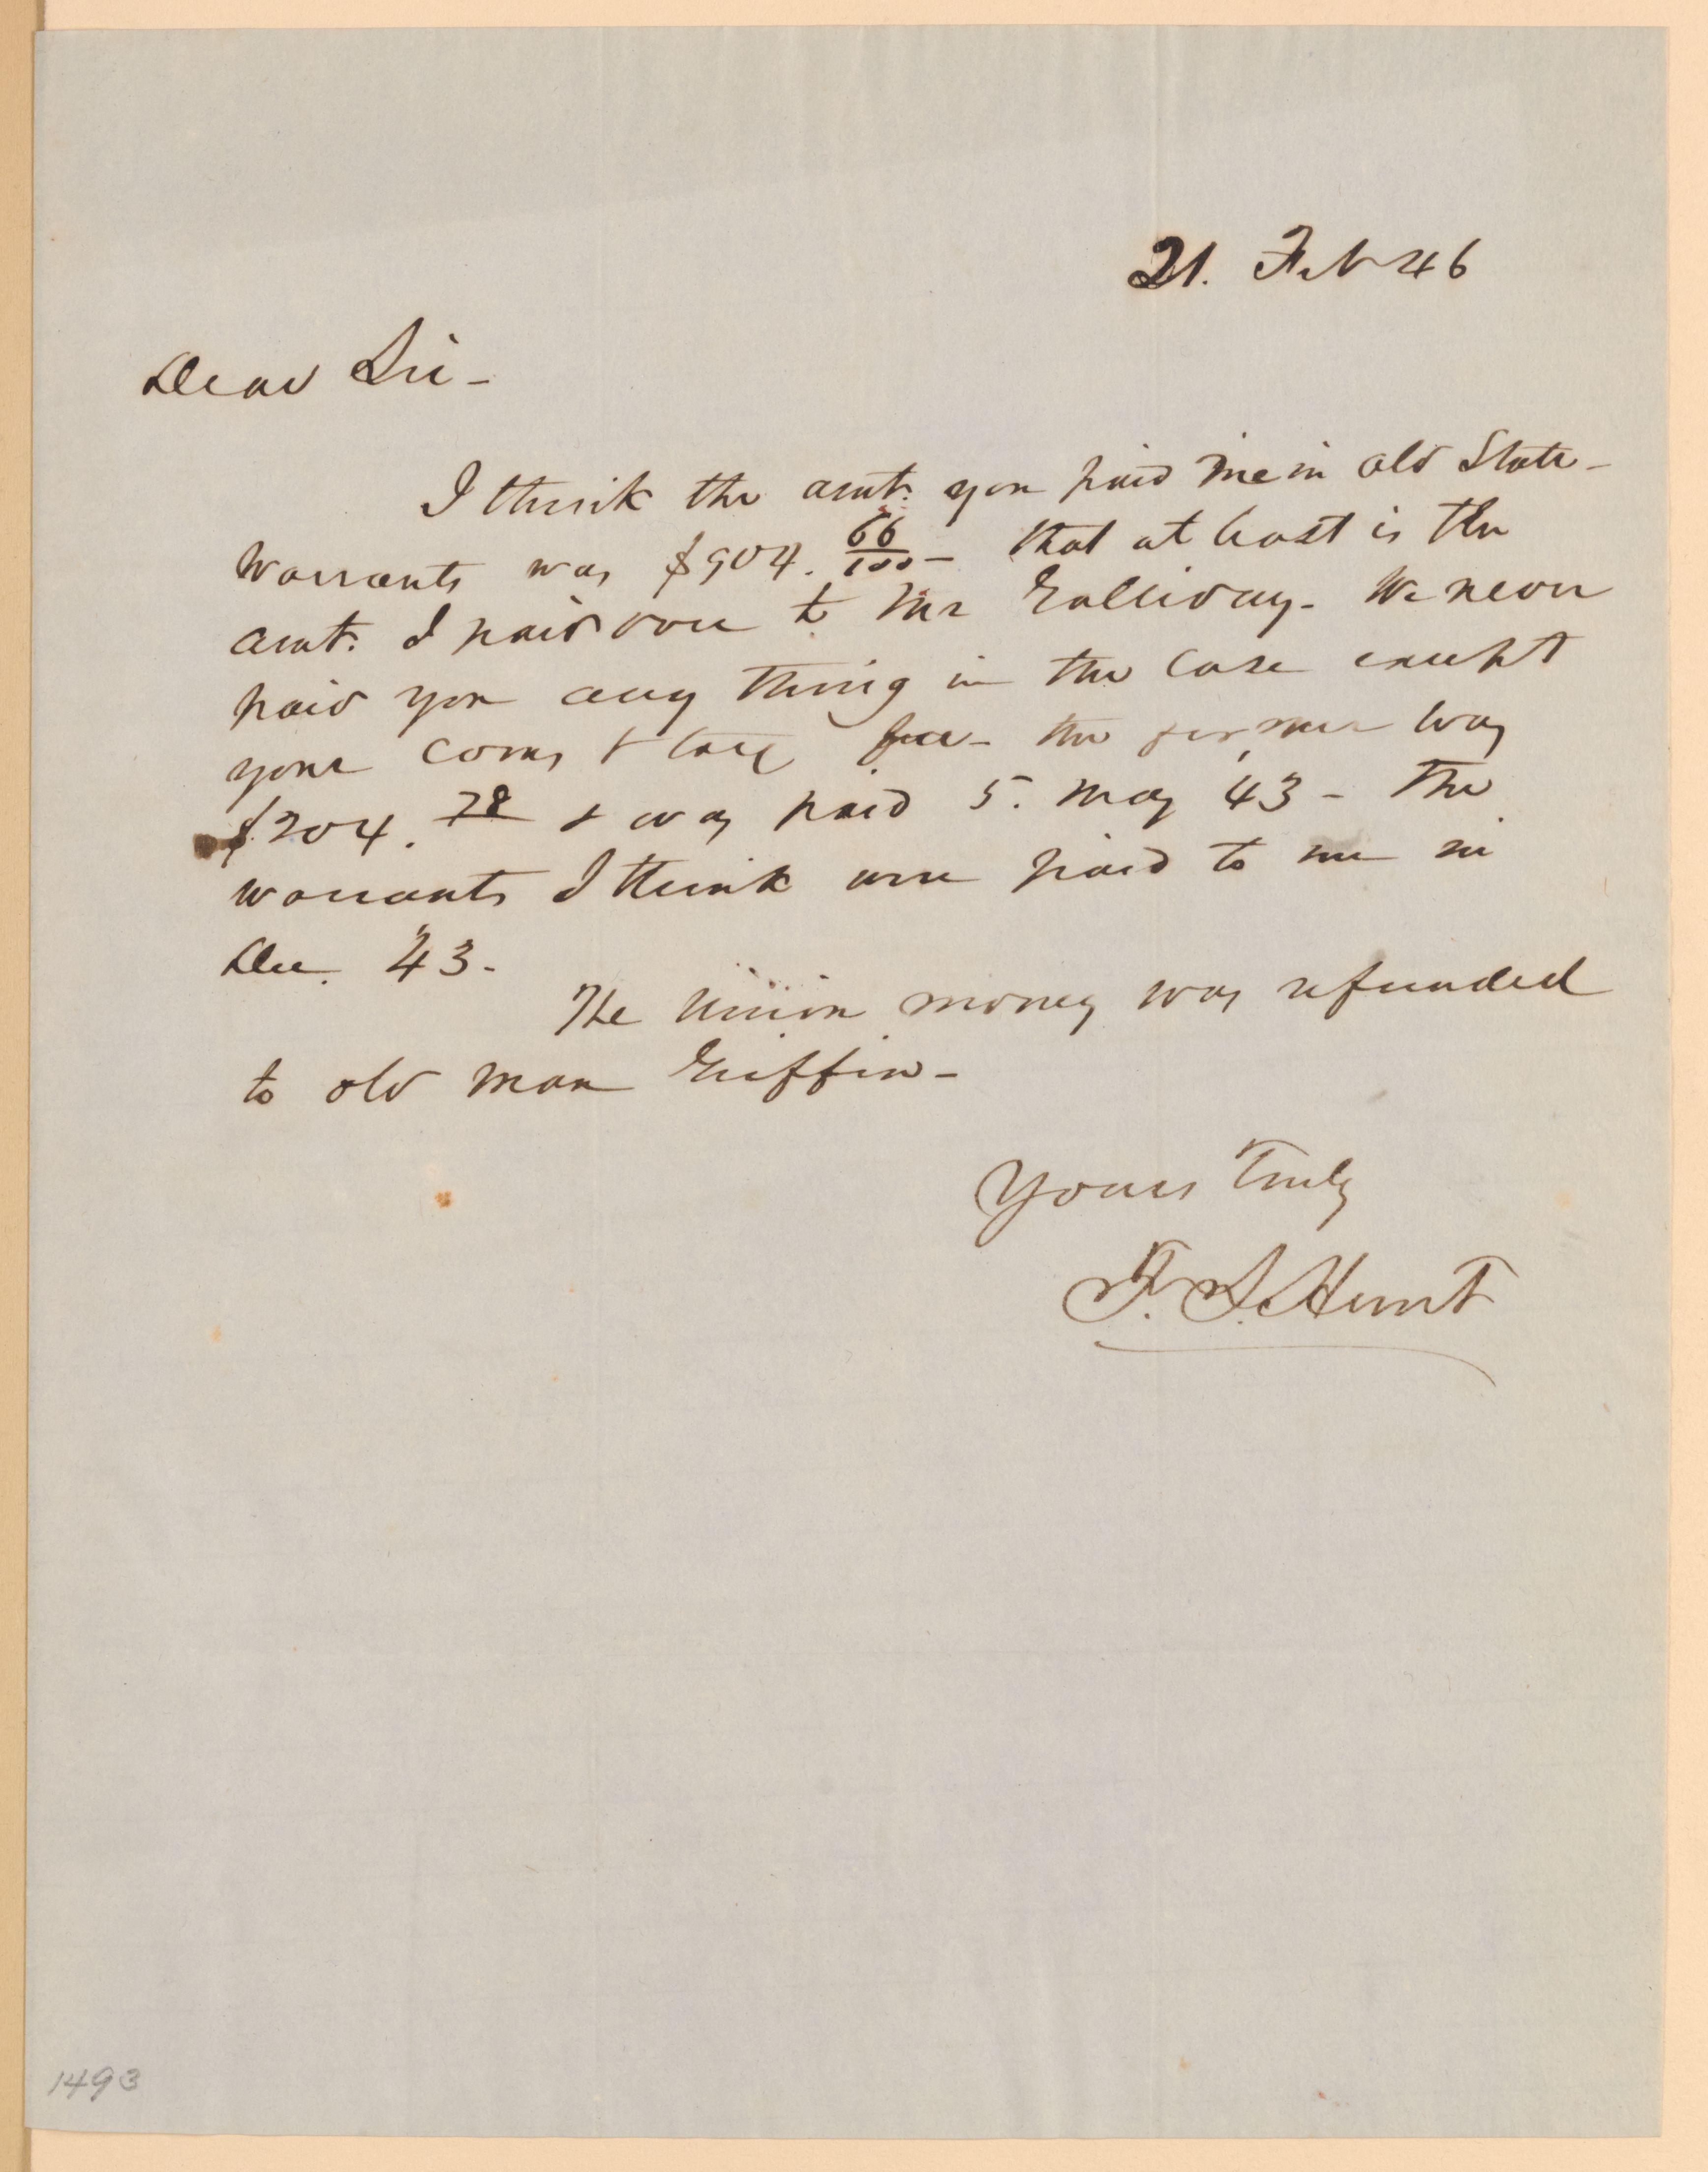 21. Feb 46
Dear Sir -
I think the amt. you paid me in old State -
warrants was $904. 66/100 - that at least is the
amt. I paid over to Mr Golliday - We never
paid you any thing in the case except
your coms & tax fee - the former was
$204. 78 & was paid 5. May 43 - The
warrants I think were paid to me in
Dec. 43 -
The Union money was refunded
to old man Griffin -
Yours Truly
F. S. Hunt
1493